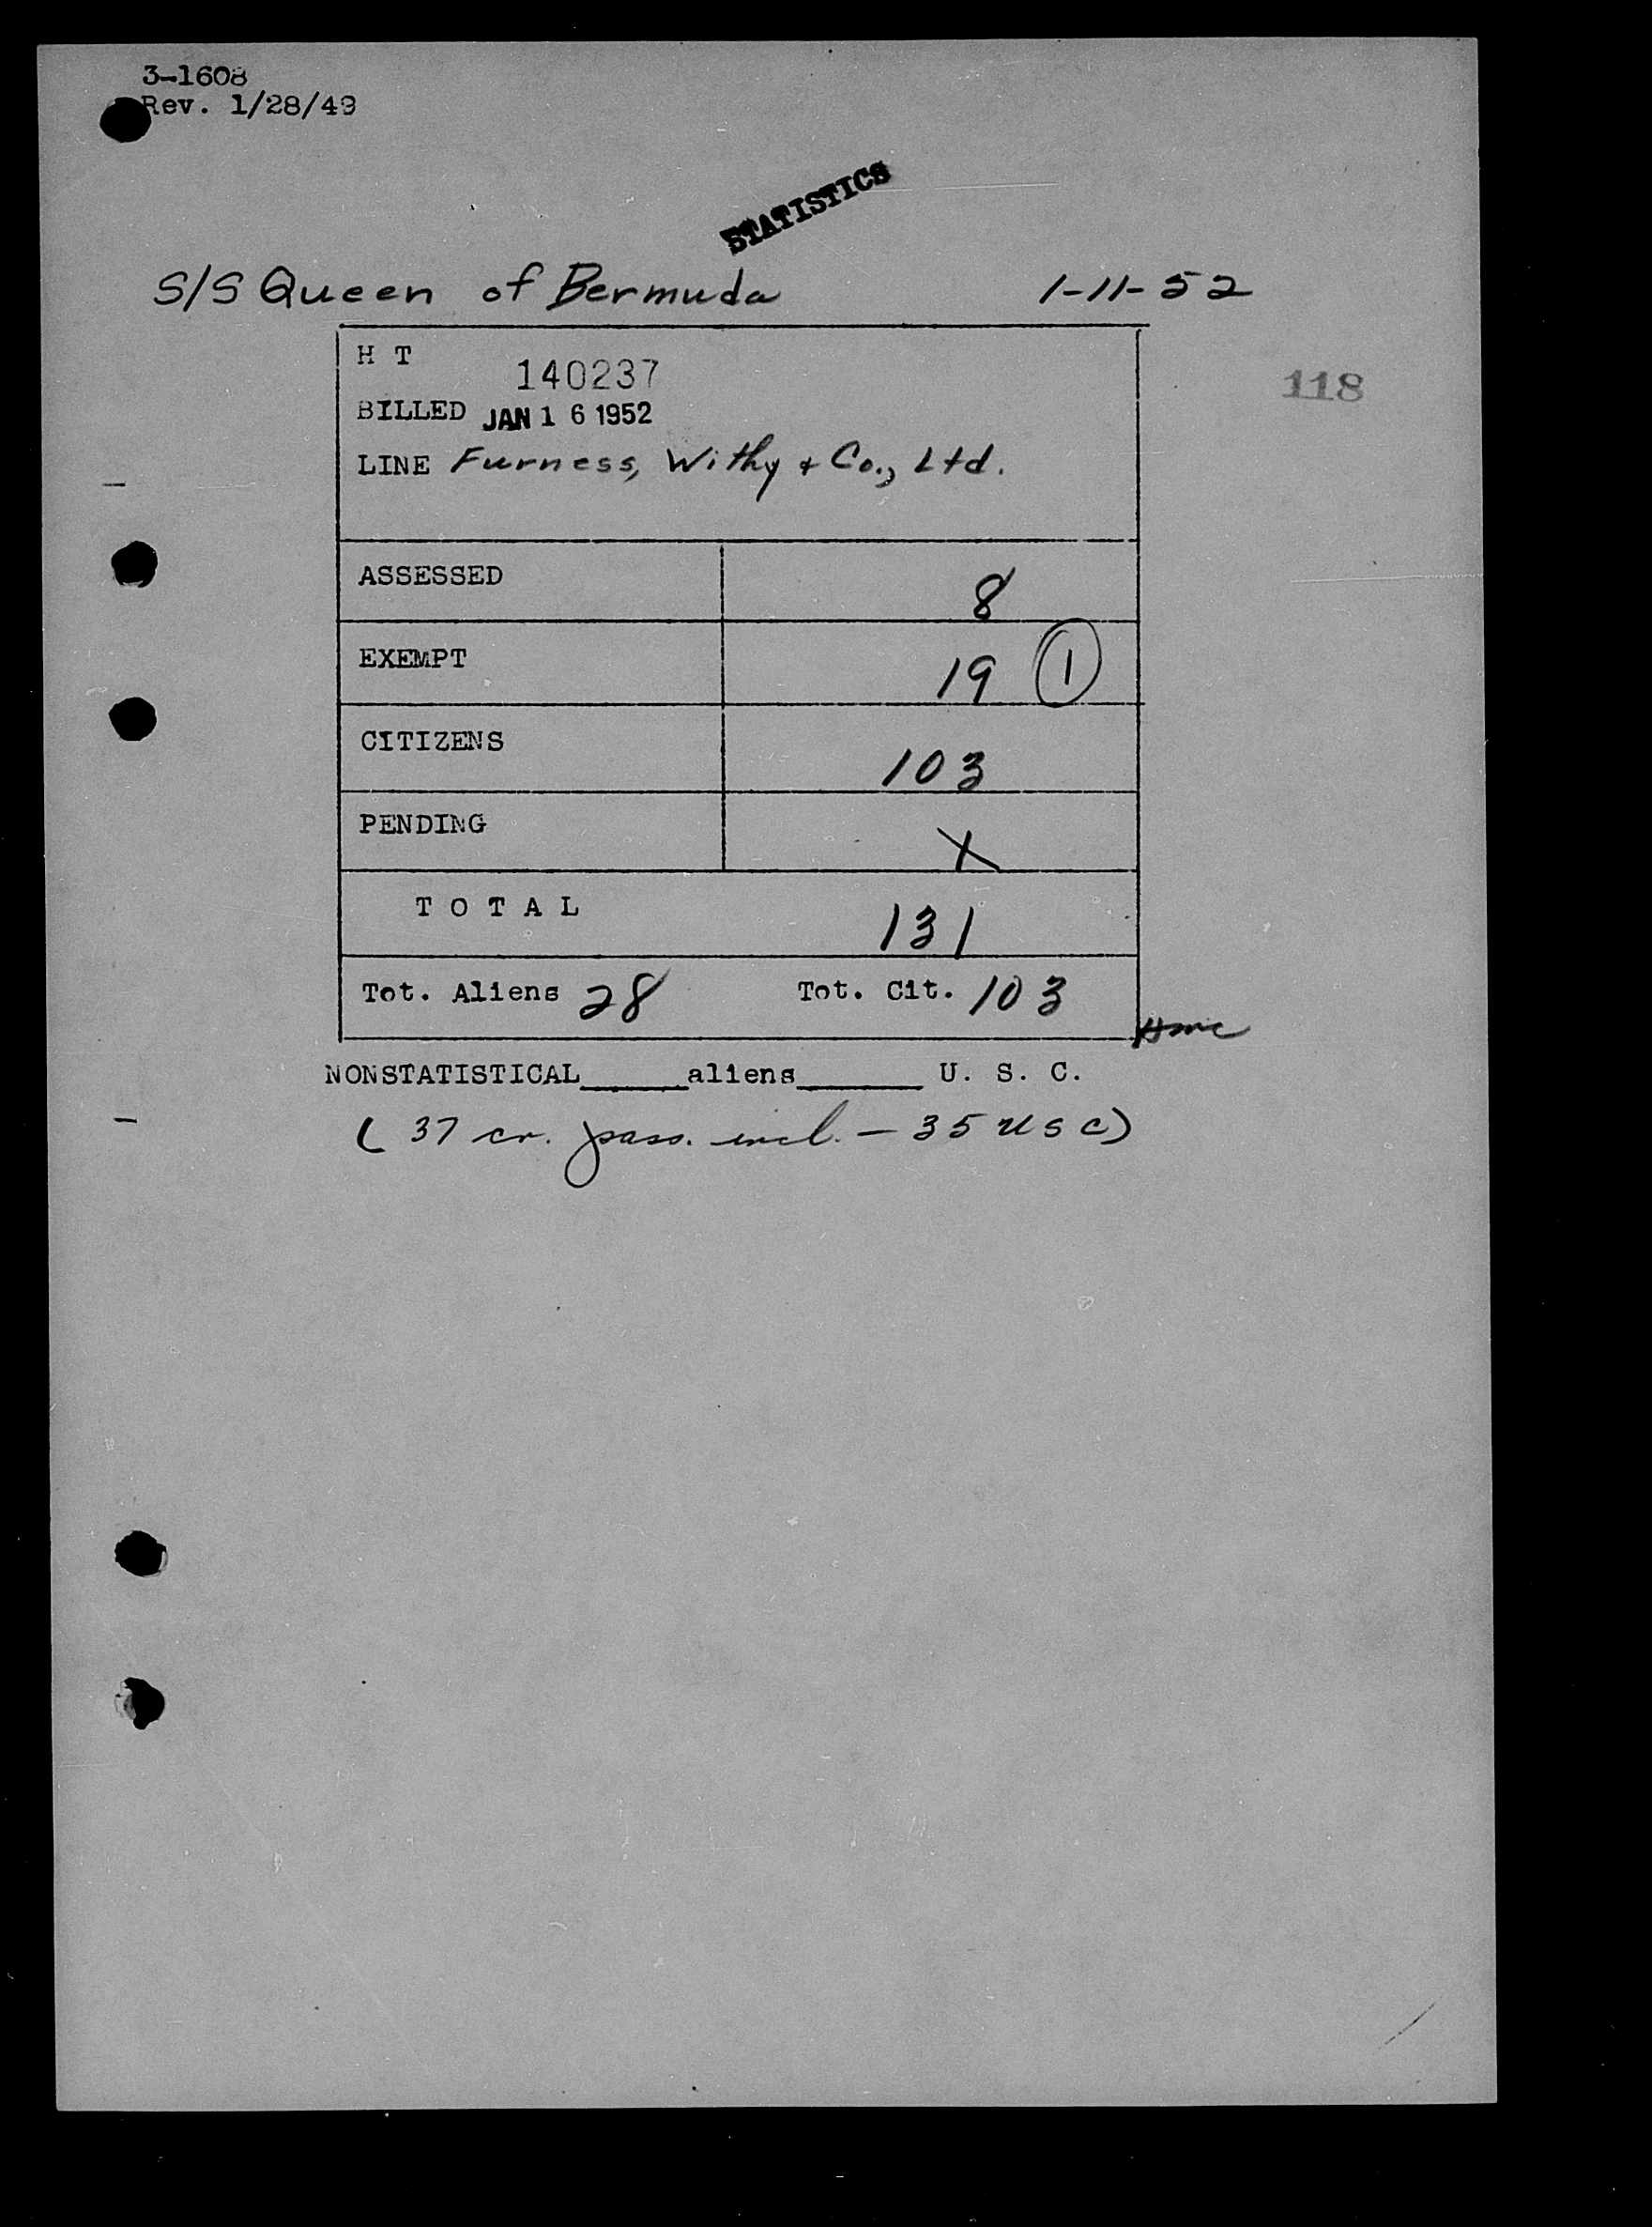 3-1608
Rev. 1/28/49
STATISTICS
S/S Queen of Bermuda 1-11-52
H T 140237
118
BILLED JAN 16 1952
LINE Furness, Withy + Co., Ltd.
ASSESSED 8
EXEMPT 19 1
CITIZENS 103
PENDING X
T O T A L 131
Tot. Aliens 28 Tot. Cit. 103
NONSTATISTICAL______aliens_______ U. S. C.
( 37 cr. pass. incl. - 35 USC)